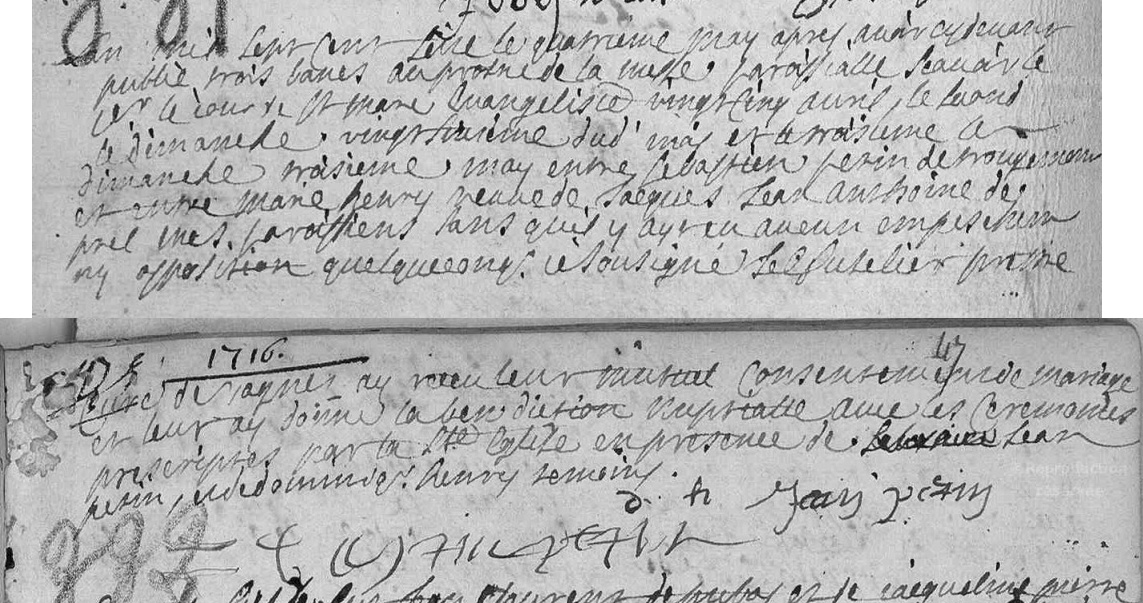 L'an mil sept cent seize le quatrieme may apres avoir cydevant
publié trois bancs au prosne de la messe paroissialle scavoir le
1er le jour de st marc Evangeliste vingt cinq avril, le second
le dimanche vingt sixieme dud' mois et le troisieme le
dimanche troisieme may entre sebastien perin de rougemont
et entre marie henry veuve de Jacques Jean anthoine de
mes paroissiens sans qu'il y ay eu aucun empeschem
ny opposition quelqueonq. je sousigné prestre
1716.
47
curé de ay receu leur mutuel consentement de mariage
et leur ay donné la benediction nuptialle avec les ceremonies
prescriptes par la Ste Eglise en presence de Jean
perin, et de dominiq. henry temoins.
d. h Jean perin
laurent et de jacqueline pierre